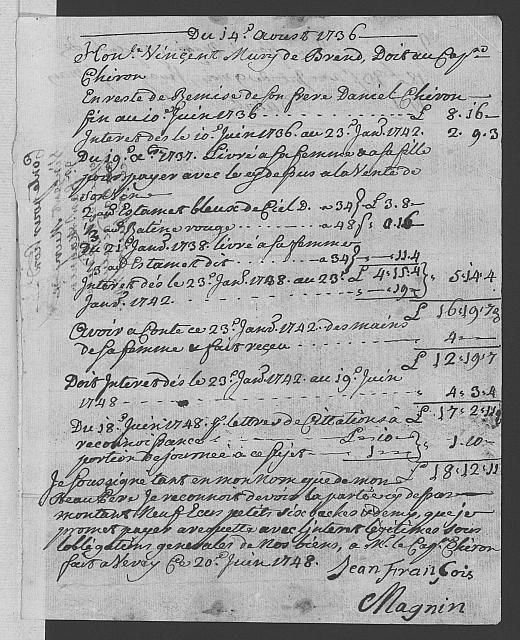 Du 14.e Aoust 1736
Hon.le Vincent Mury de Brend, Doit au Cap.ne
Chiron
En reste de Remise de son frere Daniel Chiron
fin au 10.e Juin 1736 £ 8.16
Interet dès le 10.e Juin 1736. au 23.e Janv. 1742. 2.9.3
Du 19.e 1737. Livré a sa femme & a sa fille
pour payer avec le cy dessus a la Vente de
2 au Estamet bleux de Ciel D. a 34 £ 3.8
1/3 au Ratine rouge a 48 0.16
Du 21.e Janv. 1738. livré a sa femme
1/3 au Estamet dit a 34 11.4
Interet dès le 23.e Janv. 1738 au 23.e £ 4.15.4
Janv. 1742. 19 5.14.4
£ 16.19.7
Avoir a Conte ce 23.e Janv. 1742. des mains
de sa femme & fait receu 4
£ 12.19.7
Doit Interet dès le 23.e Janv. 1742. au 19.e Juin
1748 4.3.4
£ 17.2.11
Du 18.e Juin 1748. p.r lettres de Cittations a
reconnoissance £ 10
portion de Journée a ce sujet 1 1.10
£ 18.12.11
Je soussigné tant en mon Nom que de mon
Beau Pere Je reconnoit devoir la partie cy dessus
montant Neuf Ecus petits six baches & demy, que je
promet payer avec l'interet legitimes sous
l'obligations generales de Nos biens, a M.r le Cap.ne Chiron
fait a Vevey Ce 20.e Juin 1748.
Jean François
Magnin